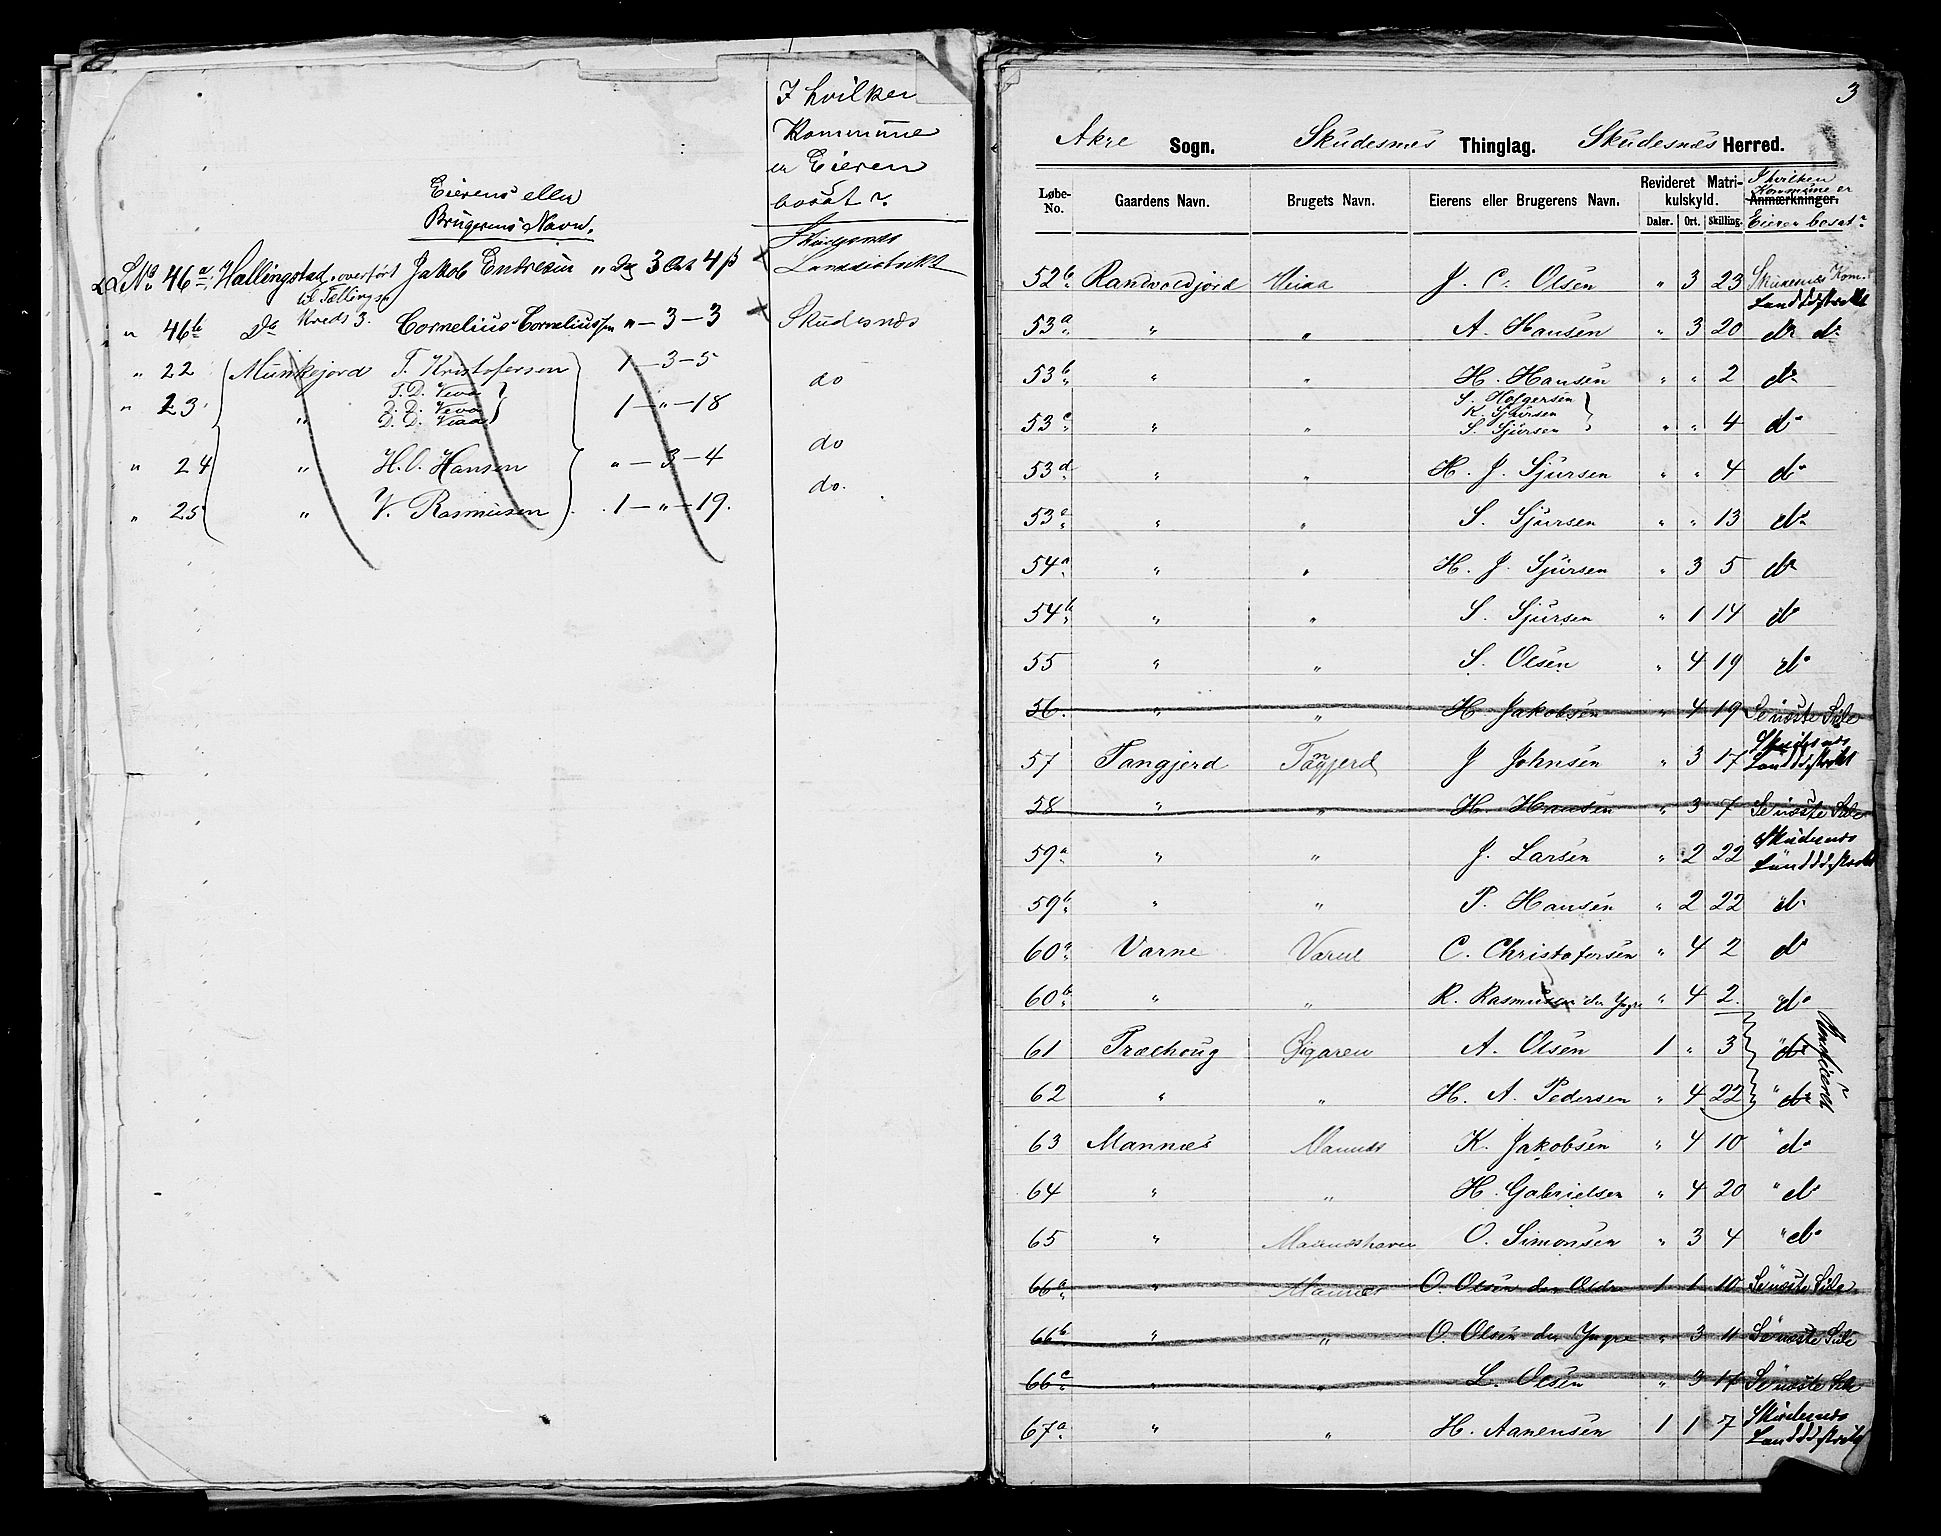 I hvilken
Kommune
er Eieren
bosat?
Eierens eller
Brugerens Navn.
L. No 46a. Hallingstad, overført Jakob Endresen " Dlr 3 Ort 4 ß Skudesnæs Landdistrikt
til Tællings-
Kreds 3.
" 46b Do Cornelius Corneliussen " - 3 - 3 Skudesnæs
" 22 Munkejord T. Kristofersen 1 - 3 - 5 do
" 23. " T. D. D. D. 1 - " - 18
" 24 " H. O. Hansen " - 3 - 4 do
" 25 " V. Rasmusen 1 - " - 19. do.
3
Akre Sogn. Skudesnes Thinglag. Skudesnæs Herred.
Løbe-No. Gaardens Navn. Brugets Navn. Eierens eller Brugerens Navn. Revideret Matrikulskyld. Daler. Ort. Skilling. Anmærkninger. I hvilken Kommune er Eieren bosat?
52b J. C. Olsen " 3 23 Landdistrikt
53a " " A. Hansen " 3 20 do do
53b " " H. Hansen " " 2 do
53c " " S. Holgersen K. Sjursen S. Sjursen " " 4 do
53d " " H. J. Sjursen " " 4 do
53e " " S. Sjursen " " 13 do
54a " " H. J. Sjursen " 3 5 do
54b " " S. Sjursen " 1 14 do
55 " " S. Olsen " 4 19 do
56. " " H. Jakobsen " 4 19 Se næste Side
57 Tangjerd Tangjerd J Johnsen " 3 17 Skudesnæs Landdistrikt
58 " " H. Hansen " 3 7 Se næste Side
59a " " J. Larsen " 2 22 Skudesnæs Landdistrikt
59b " " P. Hansen " 2 22 do
60a Varne C. Christofersen " 4 2 do
60b " " R. Rasmusen den Yngre " 4 2. do
61 Træehoug A. Olsen 1 " 3 " do
62 " " H. A. Pedersen " 4 22 " do
63 Mannes Mannes K. Jakobsen " 4 10 " do
64 " " H. Gabrielsen " 4 20 " do
65 " Manneshavn O. Simonsen " 3 4 " do
66a " Mannes O. Olsen den Ældre 1 1 10 Se næste Side
66b " " O. Olsen den Yngre " 3 11 Se næste Side
66c " " L. Olsen " 3 17 Se næste Side
67a " " H. Aanensen 1 1 7 Skudesnæs Landdistrikt